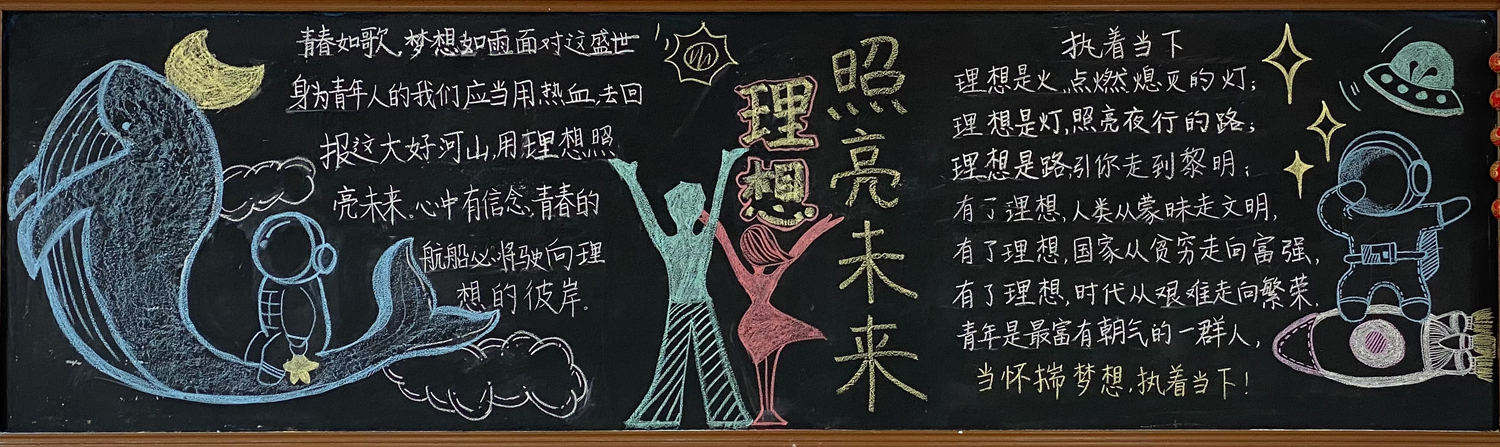 青春如歌,梦想如雨面对这盛世
身为青年人的我们应当用热血,去回
报这大好河山,用理想照
亮未来。心中有信念,青春的
航船必将驶向理
想的彼岸.
理想
照亮未来
执着当下
理想是火,点燃熄灭的灯;
理想是灯,照亮夜行的路;
理想是路,引你走到黎明;
有了理想,人类从蒙昧走文明,
有了理想,国家从贫穷走向富强,
有了理想,时代从艰难走向繁荣.
青年是最富有朝气的一群人,
当怀揣梦想,执着当下!